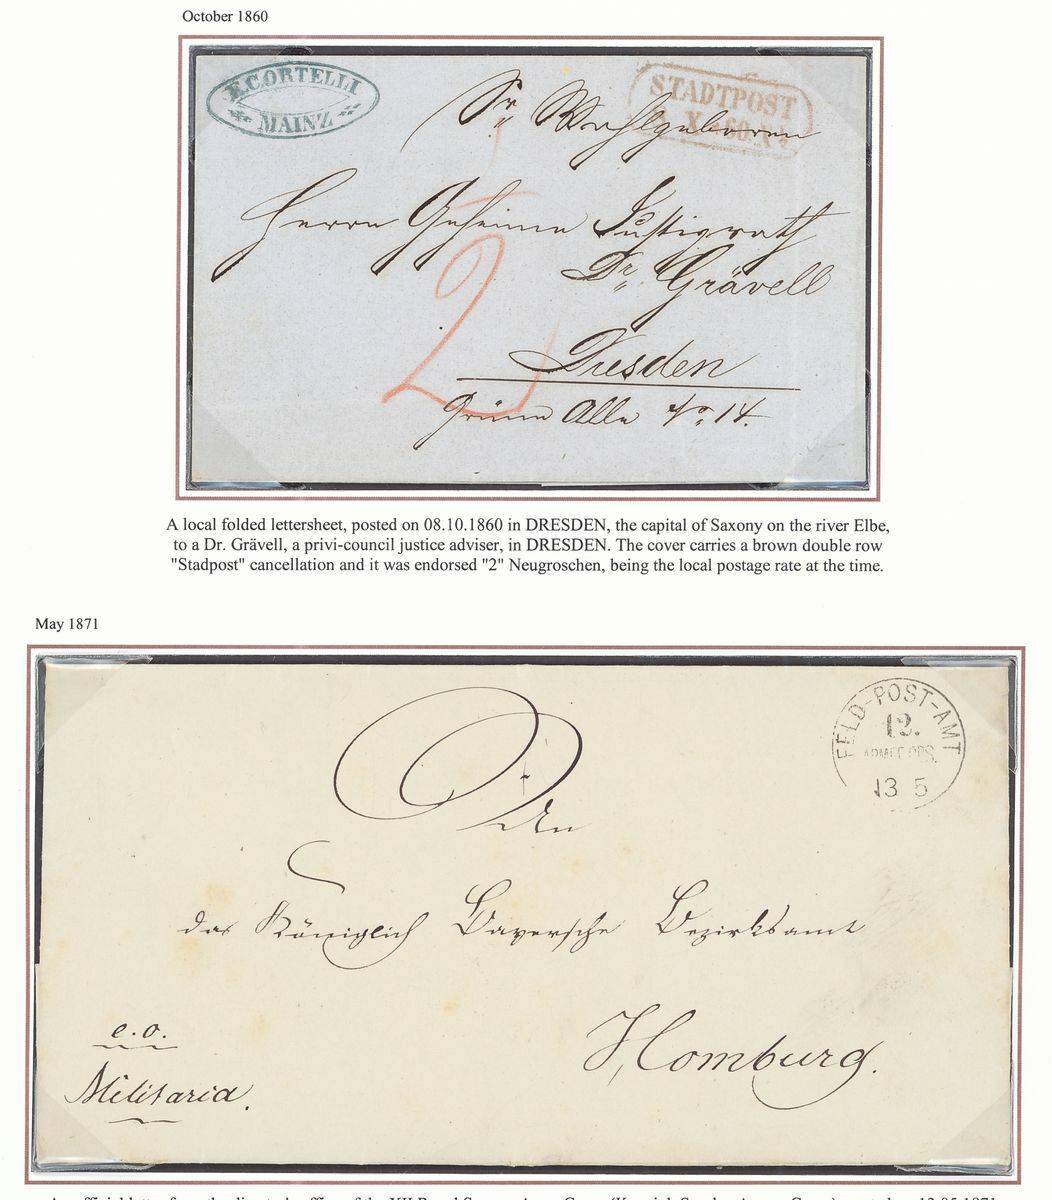 October 1860
E. CORTELLI
MAINZ
STADTPOST
X 60
Sr. Wohlgeboren
Herrn Geheime Justizrath
Dr. Grävell
2
Dresden
Grüne Alle No 14.
A local folded lettersheet, posted on 08.10.1860 in DRESDEN, the capital of Saxony on the river Elbe,
to a Dr. Grävell, a privi-council justice adviser, in DRESDEN. The cover carries a brown double row
"Stadpost" cancellation and it was endorsed "2" Neugroschen, being the local postage rate at the time.
May 1871
FELD-POST-AMT
12.
ARMEE CPS.
13 5
An
das Königlich Bayersche Bezirksamt
Homburg.
e.o.
Militaria.